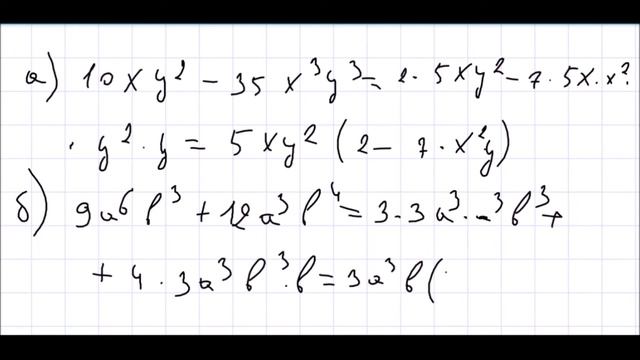 а) 10xy² − 35x³y³ = 2·5xy² − 7·5x·x²·
·y²·y = 5xy²(2 − 7·x²y)
б) 9a⁶b³ + 12a³b⁴ = 3·3a³·a³b³+
+ 4·3a³b³·b = 3a³b(